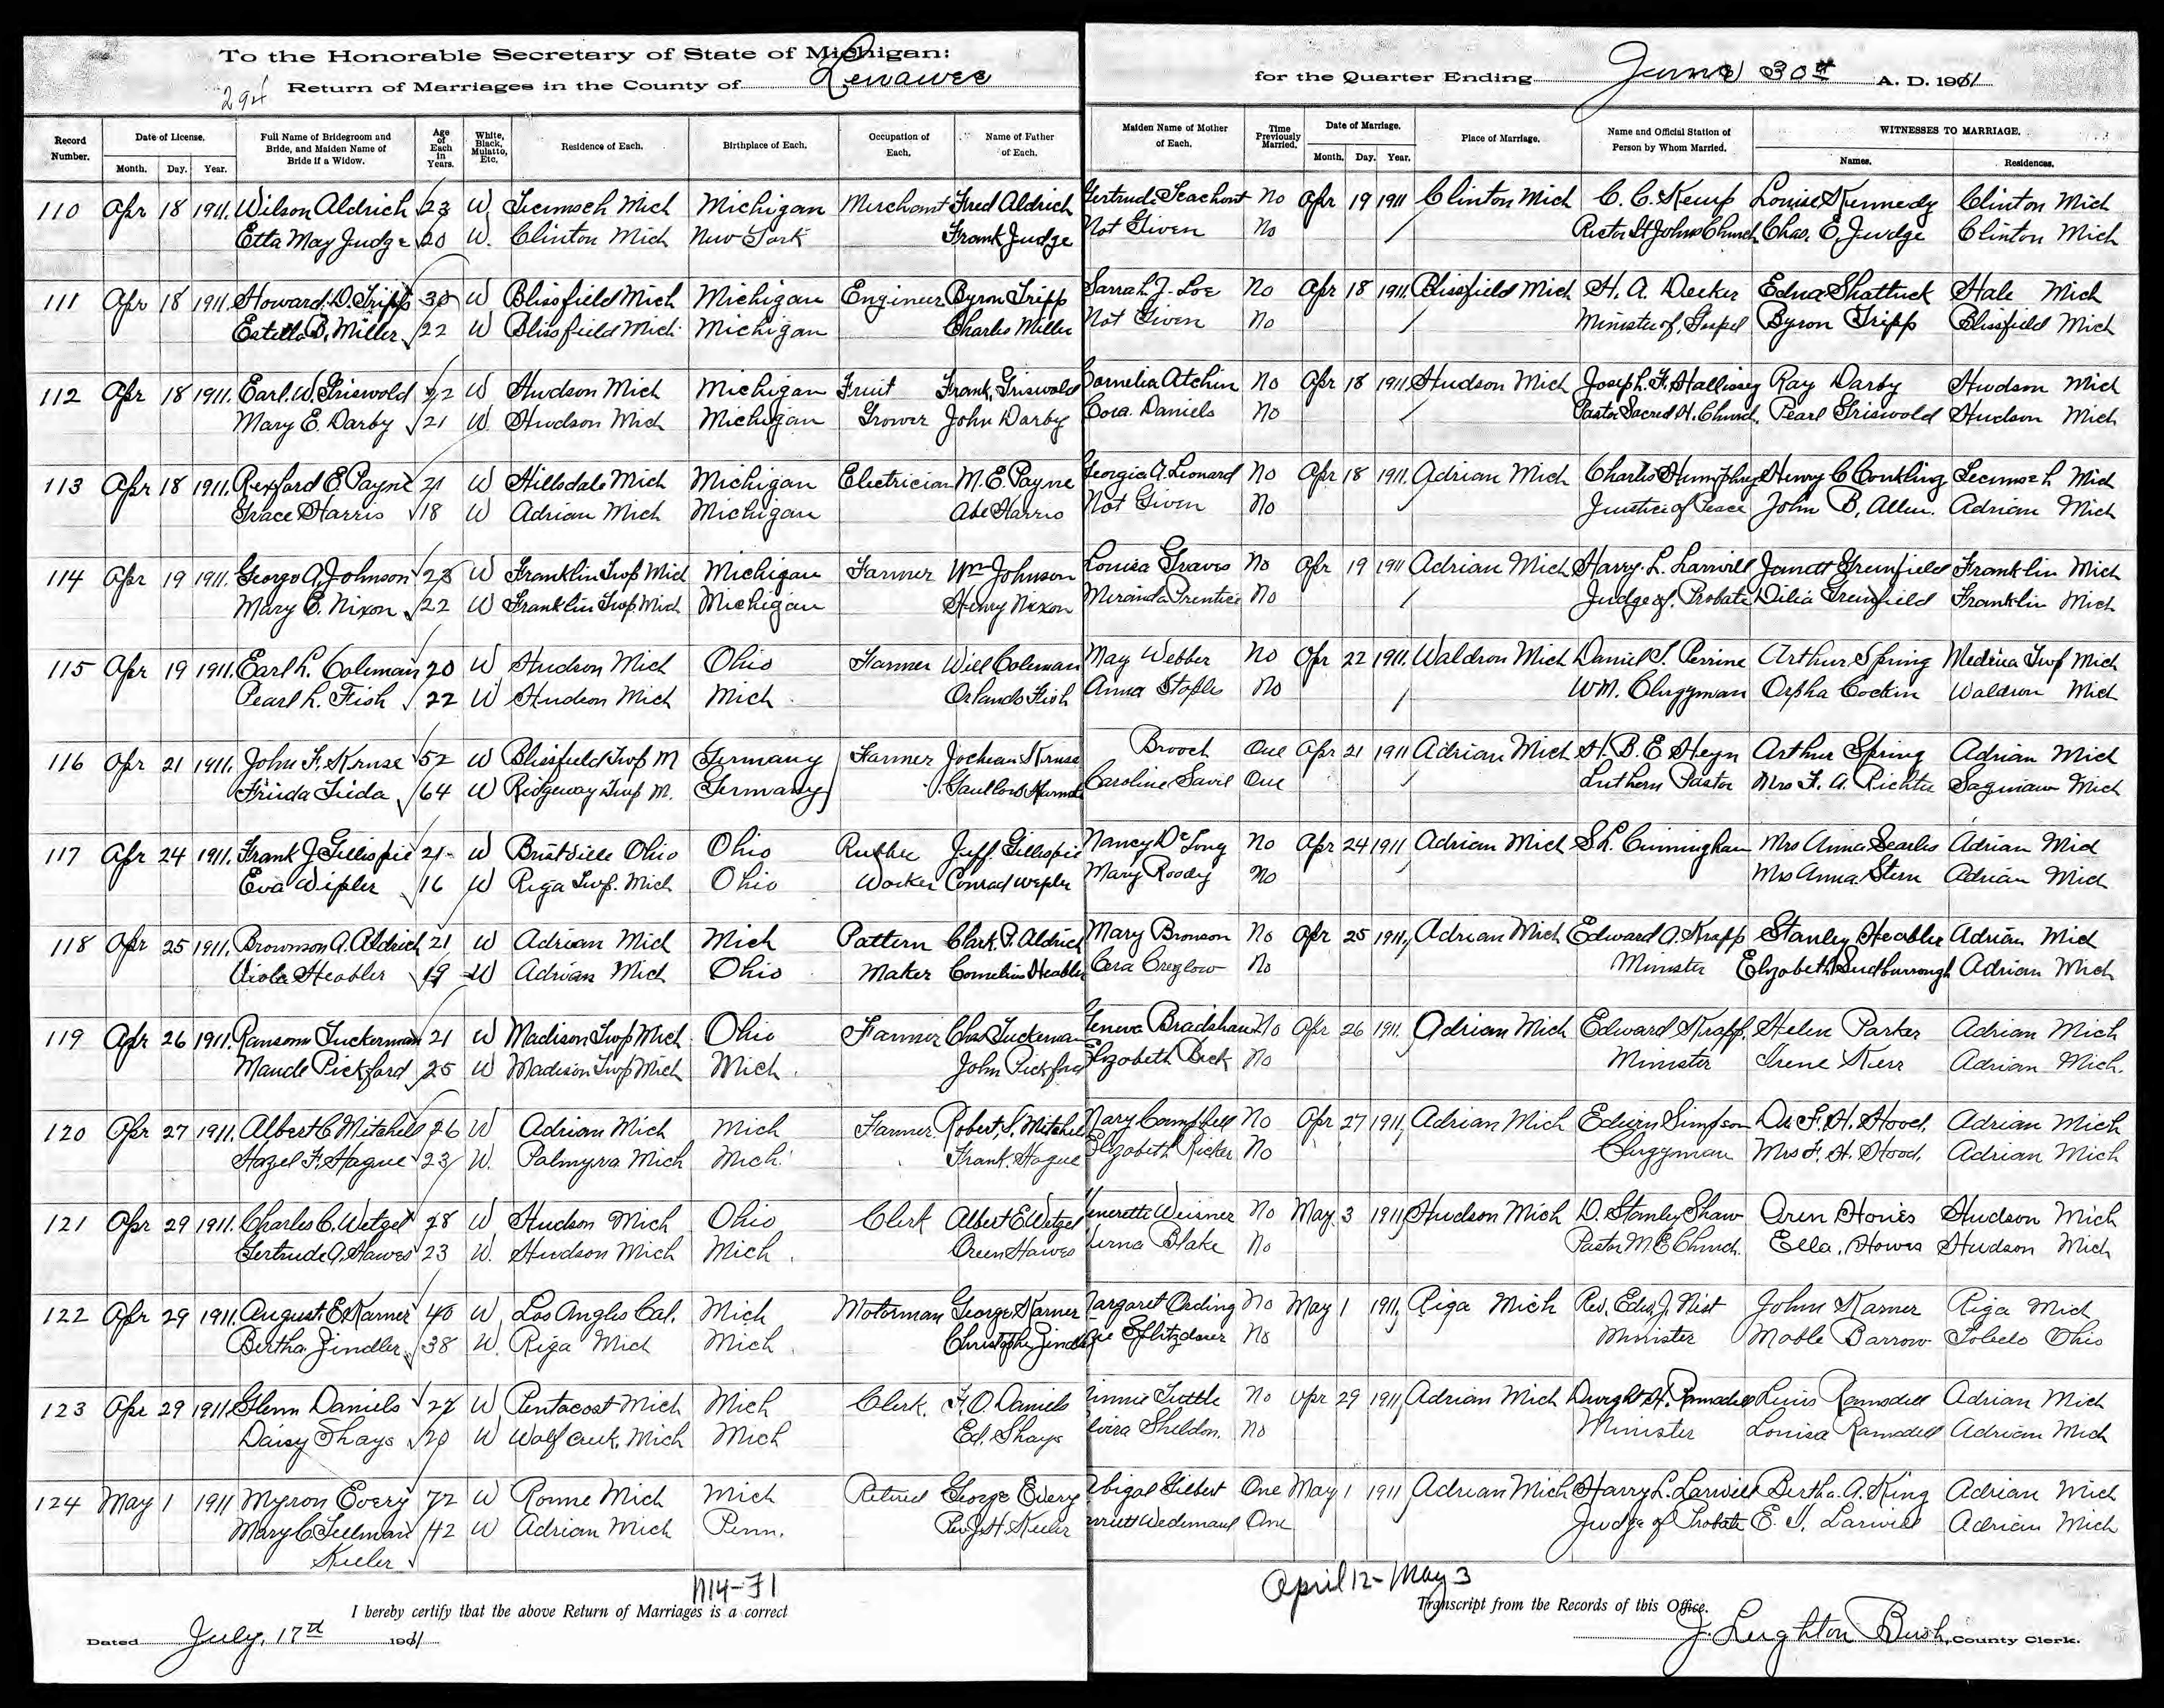 To the Honorable Secretary of State of Michigan:
294 Return of Marriages in the County of Lenawee for the Quarter Ending June 30th A. D. 1911
Record Number. Date of License. Month. Day. Year. Full Name of Bridegroom and Bride, and Maiden Name of Bride if a Widow. Age of Each in Years. White, Black, Mulatto, Etc. Residence of Each. Birthplace of Each. Occupation of Each. Name of Father of Each. Maiden Name of Mother of Each. Time Previously Married. Date of Marriage. Month. Day. Year. Place of Marriage. Name and Official Station of Person by Whom Married. WITNESSES TO MARRIAGE. Names. Residences.
110 Apr 18 1911. Wilson Aldrich 23 W Tecumseh Mich Michigan Merchant Fred Aldrich Gertrude Teachout No Apr 19 1911 Clinton Mich C. C. Kemp Louise Kennedy Clinton Mich
Etta May Judge 20 W. Clinton Mich New York Frank Judge Not Given No Rector St Johns Church Chas. E. Judge Clinton Mich
111 Apr 18 1911. Howard D. Tripp 30 W Blissfield Mich Michigan Engineer Byron Tripp Sarrah J. Loe No Apr 18 1911. Blissfield Mich H. A. Decker Edna Shattuck Hale Mich
Estella B. Miller 22 W Blissfield Mich Michigan Charles Miller Not Given No Minister of Gospel Byron Tripp Blissfield Mich
112 Apr 18 1911. Earl W. Griswold 22 W Hudson Mich Michigan Fruit Frank Griswold Cornelia Atchin No Apr 18 1911. Hudson Mich Joseph F. Hallissey Ray Darby Hudson Mich
Mary E. Darby 21 W. Hudson Mich Michigan Grower John Darby Cora Daniels No Pastor Sacred H. Church. Pearl Griswold Hudson Mich
113 Apr 18 1911. Rexford E. Payne 21 W Hillsdale Mich Michigan Electrician M. E. Payne Georgia A. Leonard No Apr 18 1911. Adrian Mich Charles Humphrey Henry C Conkling Tecumseh Mich
Grace Harris 18 W Adrian Mich Michigan Abe Harris Not Given No Justice of Peace John B. Allen. Adrian Mich
114 Apr 19 1911. George A. Johnson 23 W Franklin Twp Mich Michigan Farmer Wm Johnson Louisa Graves No Apr 19 1911 Adrian Mich Harry L. Larwill Greenfield Franklin Mich
Mary E. Nixon 22 W Franklin Twp Mich Michigan Henry Nixon Miranda Prentice No Judge of Probate Dilia Greenfield Franklin Mich
115 Apr 19 1911. Earl L. Coleman 20 W Hudson Mich Ohio Farmer Will Coleman May Webber No Apr 22 1911. Waldron Mich Daniel S. Perrine Arthur Spring Medina Twp Mich
Pearl L. Fish 22 W Hudson Mich Mich. Orlando Fish Anna Staples No WM. Clergyman Orpha Cockin Waldron Mich
116 Apr 21 1911. John F. Kruse 52 W Blissfield Twp M Germany Farmer Jochean Kruse Brooch One Apr 21 1911 Adrian Mich H. B. E Heyn Arthur Spring Adrian Mich
Frieda Tieda 64 W Ridgeway Twp M. Germany Caroline Savil One Luthern Pastor Mrs F. A. Richter Saginaw Mich
117 Apr 24 1911. Frank J Gillispie 21 W Ohio Ohio Rubber Jeff. Gillespie Nancy DeLong No Apr 24 1911 Adrian Mich S. L. Cunningham Mrs Anna Searles Adrian Mich
Eva Wipler 16 W Riga Twp. Mich Ohio Worker Conrad Wepler Mary Roody No Mrs Anna Stern Adrian Mich
118 Apr 25 1911. Brownson A. Aldrich 21 W Adrian Mich Mich Pattern Clark P. Aldrich Mary Bronson No Apr 25 1911, Adrian Mich Edward A. Krapp Stanley Heabler Adrian Mich
Viola Heabler 19 W Adrian Mich Ohio Maker Cornelius Heabler Cera Creglow No Minister Elizabeth Sudburrough Adrian Mich
119 Apr 26 1911. Ransom Tuckerman 21 W Madison Twp Mich Ohio Farmer Chas Tuckerman Geneva Bradshaw No Apr 26 1911. Adrian Mich Edward Krapp. Helen Parker Adrian Mich
Maude Pickford 25 W Madison Twp Mich Mich. John Pickford Elizabeth Beck No Minister Irene Kerr Adrian Mich.
120 Apr 27 1911. Albert C Mitchell 26 W Adrian Mich Mich Farmer Robert S. Mitchell Mary Campbell No Apr 27 1911, Adrian Mich Edwin Simpson Dr F. H. Hood. Adrian Mich
Hazel F. Hague 23 W. Palmyra Mich Mich. Frank Hague Elizabeth Ricker No Clergyman Mrs F. H. Hood. Adrian Mich
121 Apr 29 1911. Charles C. Wetzel 28 W Hudson Mich Ohio Clerk Albert E Wetzel Weisner No May 3 1911, Hudson Mich D. Stanley Shaw Oren Howes Hudson Mich
Gertrude A. Hawes 23 W. Hudson Mich Mich. Oreen Hawes Verna Blake No Pastor M. E Church. Ella Howes Hudson Mich
122 Apr 29 1911. August E. Karner 40 W Los Angles Cal. Mich Motorman George Karner Margaret Ording No May 1 1911, Riga Mich Rev. Edw. J. Nist John Karner Riga Mich
Bertha Zindler 38 W. Riga Mich Mich. Christophe Zindler No Minister Mable Barrow Toledo Ohio
123 Apr 29 1911 Glenn Daniels 22 W Pentacost Mich Mich Clerk. F. O. Daniels Minnie Tuttle No Apr 29 1911, Adrian Mich Dwight H. Ramsdell Luis Ramsdell Adrian Mich
Daisy Shays 20 W Wolf Creek, Mich Mich Ed. Shays Elvira Sheldon. No Minister Louisa Ramsdell Adrian Mich
124 May 1 1911 Myron Every 72 W Rome Mich Mich Retired George Every Abigal Gilbert One May 1 1911 Adrian Mich Harry L. Larwill Bertha A. King Adrian Mich
Mary C Tellman 42 W Adrian Mich Penn. Rev J. H. Keeler Wedemaul One Judge of Probate E. I. Larwill Adrian Mich
Keeler
M14-F1 April 12 - May 3
I hereby certify that the above Return of Marriages is a correct Transcript from the Records of this Office.
Dated July, 17th 1911 J. Leighton Bush, County Clerk.